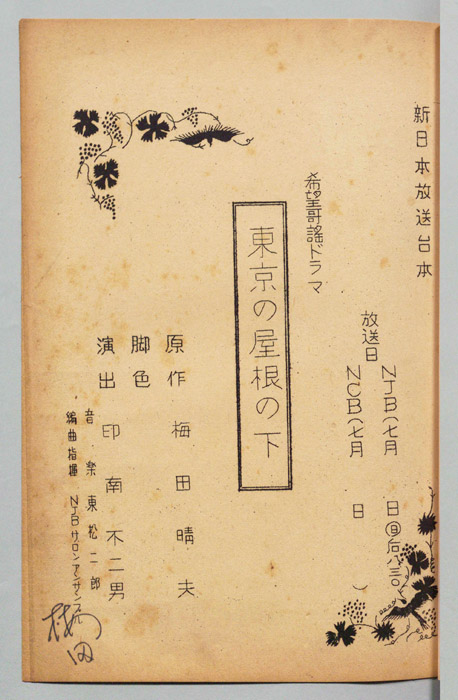 新日本放送台本
放送日
NJB(七月 日㊐后八・三〇
NCB(七月 日 )
希望哥謡ドラマ
東京の屋根の下
原作 梅田晴夫
脚色
演出 印南不二男
音楽 東松二郎
編曲指揮 NJBサロンアンサンブル
梅田